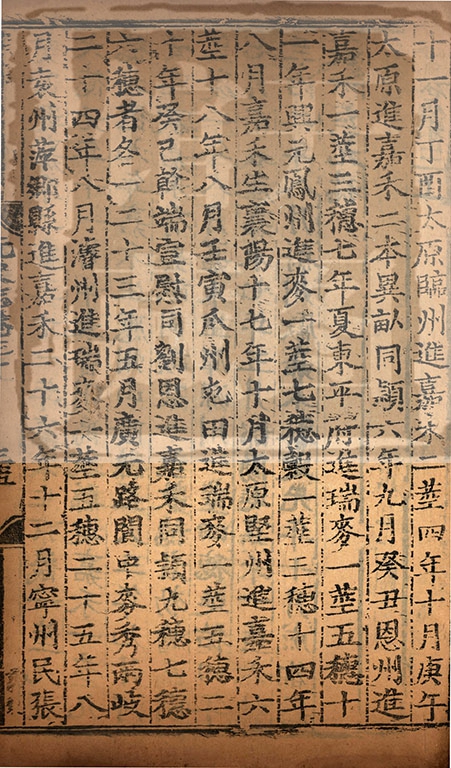 十一月丁酉太原臨州進嘉禾二莖四年十月庚午
太原進嘉禾二本異畝同穎六年九月癸丑恩州進
嘉禾一莖三穗七年夏東平府進瑞麥一莖五穗十
一年興元鳳州進麥一莖七穗穀一莖三穗十四年
八月嘉禾生襄陽十七年十月太原堅州進嘉禾六
莖十八年八月壬寅瓜州屯田進瑞麥一莖五穗二
十年癸巳斡端宣慰司劉恩進嘉禾同穎九穗七穗
六穗者各一二十三年五月廣元路閬中麥秀兩岐
二十四年八月濬州進瑞麥一莖五穗二十五年八
月袁州萍鄉縣進嘉禾二十六年十二月寧州民張